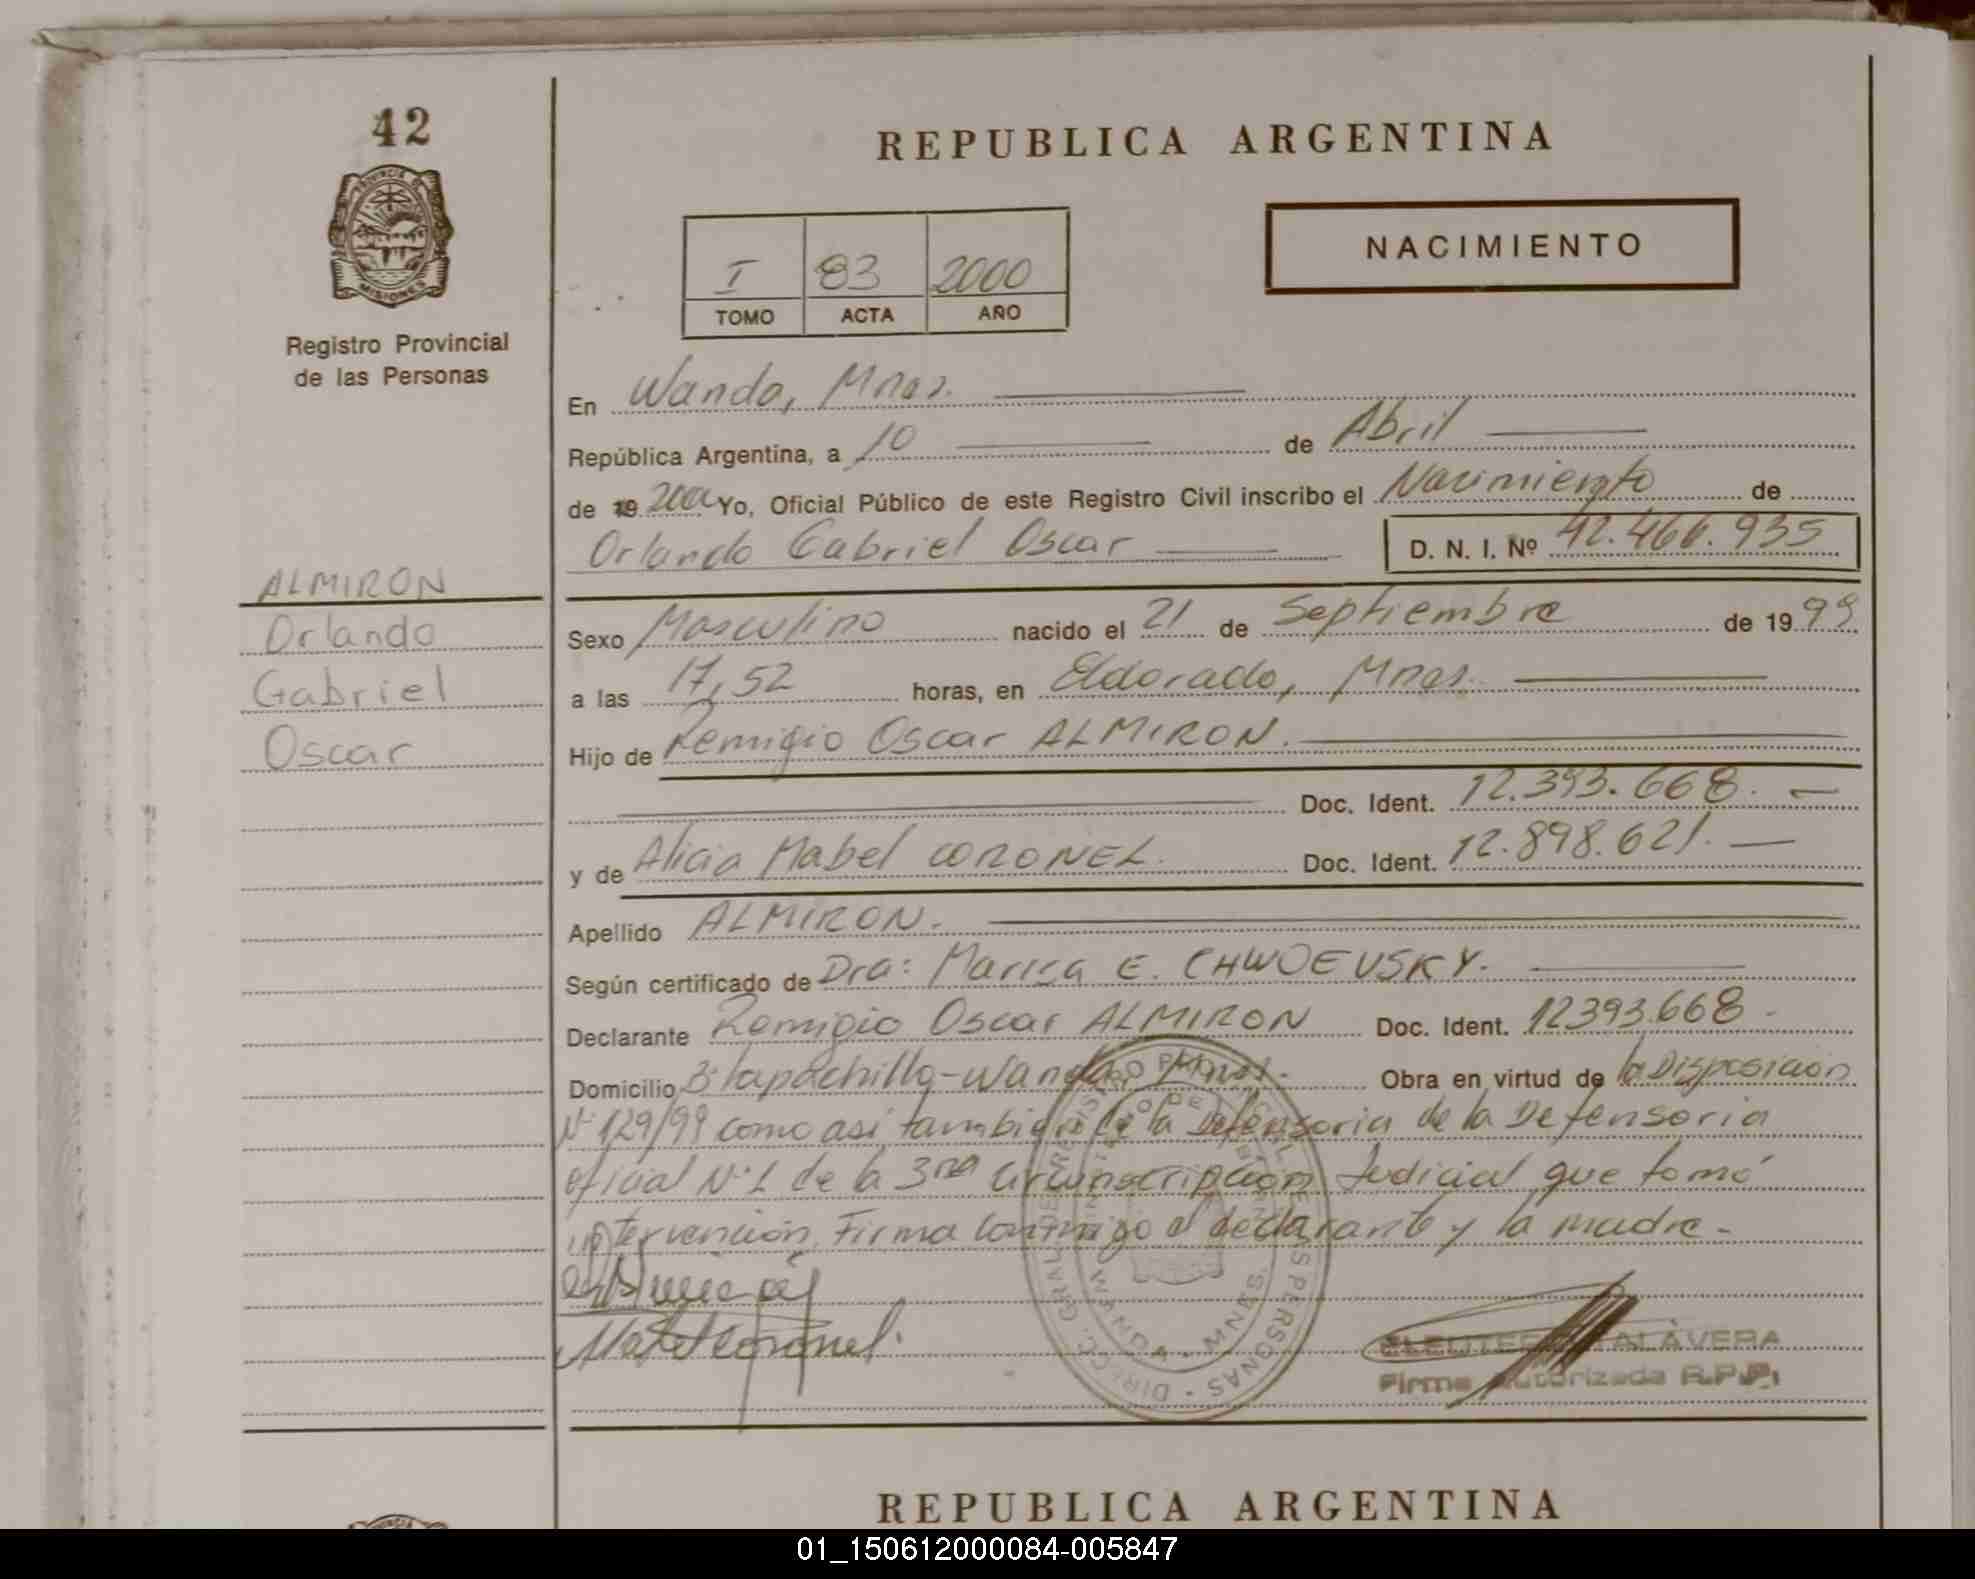 42
PROVINCIA DE
MISIONES
Registro Provincial
de las Personas
ALMIRON
Orlando
Gabriel
Oscar
REPUBLICA ARGENTINA
NACIMIENTO
I 83 2000
TOMO ACTA AÑO
En Wanda, Mnes.
República Argentina, a 10 de Abril
de 19 2000 Yo, Oficial Público de este Registro Civil inscribo el Nacimiento de
Orlando Gabriel Oscar D. N. I. Nº 42.466.935
Sexo Masculino nacido el 21 de Septiembre de 1999
a las 17,52 horas, en Eldorado, Mnes.
Hijo de Remigio Oscar ALMIRON.
Doc. Ident. 12.393.668.
y de Alicia Mabel CORONEL. Doc. Ident. 12.898.621.
Apellido ALMIRON.
Según certificado de Dra: Marisa E. CHWOEVSKY.
Declarante Remigio Oscar ALMIRON Doc. Ident. 12393.668.
Domicilio Bº tapichillo-Wanda, Mnes. Obra en virtud de la Disposición
Nº 129/99 como asi también de la Defensoria de la Defensoria
oficial Nº 1 de la 3ra Circunscripción Judicial que tomó
intervención. Firma conmigo el declarante y la madre.
Mabel Coronel.
ELEUTERIO TALAVERA
Firma Autorizada R.P.P.
REPUBLICA ARGENTINA
01_150612000084-005847